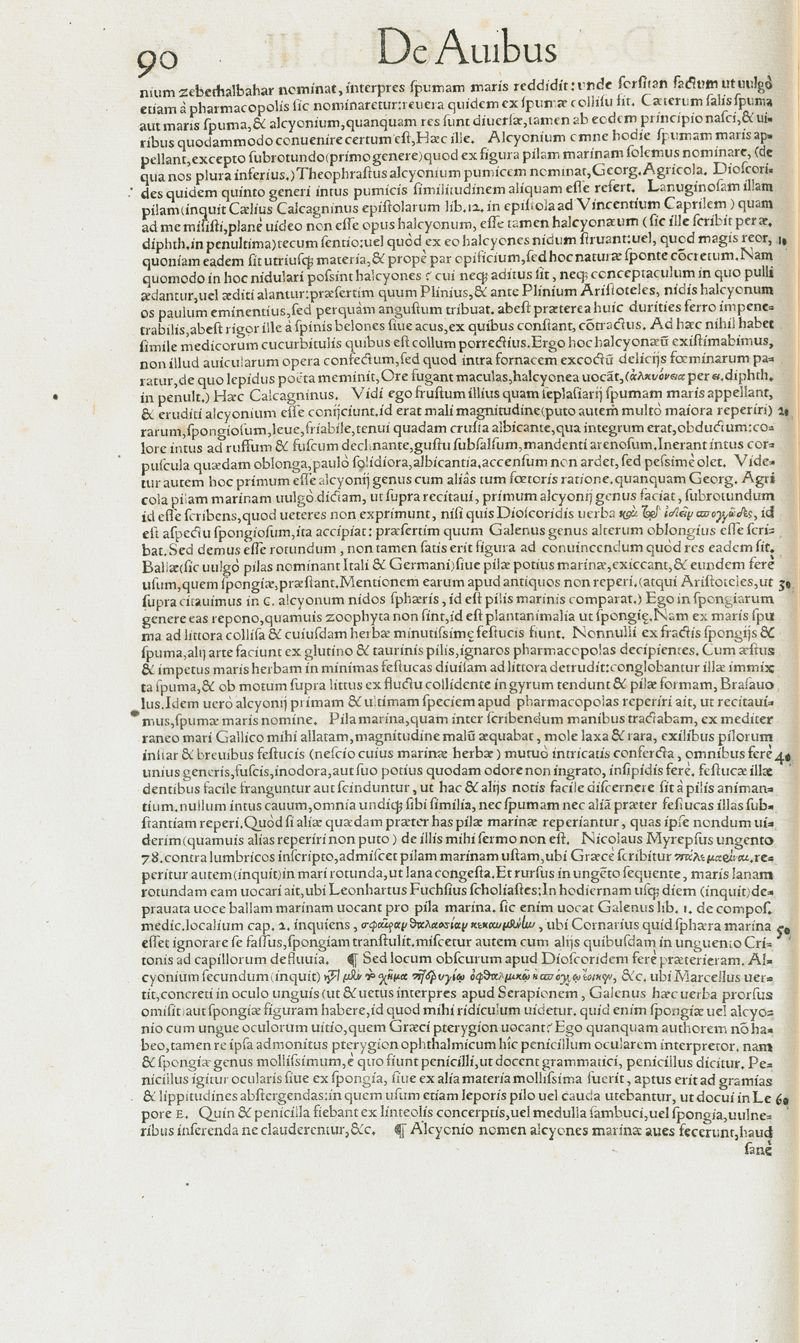 90
De Auibus
nium zebethalbahar nominat, interpres ſpumam maris reddidit: unde forſitan factum ut uulgò
etiam à pharmacopolis ſic nominaretur: reuera quidem ex ſpumæ colliſu fit. Cæterum ſalis ſpuma
aut maris ſpuma, & alcyonium, quanquam res ſunt diuerſæ, tamen ab eodem principio naſci, & ui⸗
ribus quodammodo conuenire certum eſt, Hæc ille. Alcyonium omne hodie ſpumam maris ap⸗
pellant, excepto ſubrotundo (primo genere) quod ex figura pilam marinam ſolemus nominare, (de
qua nos plura inferius.) Theophraſtus alcyonium pumicem nominat, Georg. Agricola. Dioſcori⸗
des quidem quinto generi intus pumicis ſimilitudinem aliquam eſſe refert. Lanuginoſam illam
pilam (inquit Cælius Calcagninus epiſtolarum lib. 12. in epiſtola ad Vincentium Caprilem) quam
ad me miſiſti, planè uideo non eſſe opus halcyonum, eſſe tamen halcyonæum (ſic ille ſcribit per æ,
diphth. in penultima) tecum ſentio: uel quòd ex eo halcyones nidum ſtruant: uel, quod magis reor, 10
quoniam eadem ſit utriuſq; materia, & propè par opificium, ſed hoc naturæ ſponte cōcretum. Nam
quomodo in hoc nidulari poſsint halcyones? cui neq; aditus ſit, neq; conceptaculum in quo pulli
ædantur, uel æditi alantur: præſertim quum Plinius, & ante Plinium Ariſtoteles, nidis halcyonum
os paulum eminentius, ſed perquàm anguſtum tribuat. abeſt præterea huic durities ferro impene⸗
trabilis, abeſt rigor ille à ſpinis belones ſiue acus, ex quibus conſtant, cōtractus. Ad hæc nihil habet
ſimile medicorum cucurbitulis quibus eſt collum porrectius. Ergo hoc halcyonæū exiſtimabimus,
non illud auicularum opera confectum, ſed quod intra fornacem excoctū delicijs fœminarum pa⸗
ratur, de quo lepidus poëta meminit, Ore fugant maculas, halcyonea uocāt, (ἀλκυόνεια per ει. diphth.
in penult.) Hæc Calcagninus. Vidi ego fruſtum illius quam ſeplaſiarij ſpumam maris appellant,
& eruditi alcyonium eſſe conijciunt. id erat mali magnitudine (puto autem multò maiora reperiri) 20
rarum, ſpongioſum, leue, friabile, tenui quadam cruſta albicante, qua integrum erat, obductum: co⸗
lore intus ad ruffum & fuſcum declinante, guſtu ſubſalſum, mandenti arenoſum. Inerant intus cor⸗
puſcula quædam oblonga, paulò ſolidiora, albicantia. accenſum non ardet, ſed peſsimè olet. Vide⸗
tur autem hoc primum eſſe alcyonij genus cum aliâs tum fœtoris ratione. quanquam Georg. Agri
cola pilam marinam uulgò dictam, ut ſupra recitaui, primum alcyonij genus faciat, ſubrotundum
id eſſe ſcribens, quod ueteres non exprimunt, niſi quis Dioſcoridis uerba σπογγῶδες, id
eſt aſpectu ſpongioſum, ita accipiat: præſertim quum Galenus genus alterum oblongius eſſe ſcri⸗
bat. Sed demus eſſe rotundum, non tamen ſatis erit figura ad conuincendum quòd res eadem ſit.
Ballæ (ſic uulgò pilas nominant Itali & Germani) ſiue pilæ potius marinæ, exiccant, & eundem ferè
uſum, quem ſpongiæ, præſtant. Mentionem earum apud antiquos non reperi. (atqui Ariſtoteles, ut 30
ſupra citauimus in C. alcyonum nidos ſphæris, id eſt pilis marinis comparat.) Ego in ſpongiarum
genere eas repono, quamuis zoophyta non ſint, id eſt plantanimalia ut ſpongię. Nam ex maris ſpu
ma ad littora colliſa & cuiuſdam herbæ minutiſsimę feſtucis fiunt. Nonnulli ex fractis ſpongijs &
ſpuma, alij arte faciunt ex glutino & taurinis pilis, ignaros pharmacopolas decipientes. Cum æſtus
& impetus maris herbam in minimas feſtucas diuiſam ad littora detrudit: conglobantur illæ immix
ta ſpuma, & ob motum ſupra littus ex fluctu collidente in gyrum tendunt & pilæ formam, Braſauo
lus. Idem uerò alcyonij primam & ultimam ſpeciem apud pharmacopolas reperiri ait, ut recitaui⸗
mus, ſpumæ maris nomine. Pila marina, quam inter ſcribendum manibus tractabam, ex mediter
raneo mari Gallico mihi allatam, magnitudine malū æquabat, mole laxa & rara, exilibus pilorum
inſtar & breuibus feſtucis (neſcio cuius marinæ herbæ) mutuò intricatis conferta, omnibus ferè 40
unius generis, fuſcis, inodora, aut ſuo potius quodam odore non ingrato, inſipidis ferè. feſtucæ illæ
dentibus facile franguntur aut ſcinduntur, ut hac & alijs notis facile diſcernere ſit à pilis animan⸗
tium. nullum intus cauum, omnia undiq; ſibi ſimilia, nec ſpumam nec aliā præter feſtucas illas ſub⸗
ſtantiam reperi. Quòd ſi aliæ quædam præter has pilæ marinæ reperiantur, quas ipſe nondum ui⸗
derim (quamuis alias reperiri non puto) de illis mihi ſermo non eſt. Nicolaus Myrepſus ungento
78. contra lumbricos inſcripto, admiſcet pilam marinam uſtam, ubi Græcè ſcribitur re⸗
peritur autem (inquit) in mari rotunda, ut lana congeſta. Et rurſus in ungēto ſequente, maris lanam
rotundam eam uocari ait, ubi Leonhartus Fuchſius ſcholiaſtes: In hodiernam uſq; diem (inquit) de⸗
prauata uoce ballam marinam uocant pro pila marina. ſic enim uocat Galenus lib. 1. de compoſ.
medic. localium cap. 2. inquiens, σφαῖραν θαλασσίαν κεκαυμένην, ubi Cornarius quid ſphæra marina 50
eſſet ignorare ſe faſſus, ſpongiam tranſtulit. miſcetur autem cum alijs quibuſdam in unguento Cri⸗
tonis ad capillorum defluuia. ¶ Sed locum obſcurum apud Dioſcoridem ferè præterieram. Al⸗
cyonium ſecundum (inquit) &c. ubi Marcellus uer⸗
tit, concreti in oculo unguis (ut & uetus interpres apud Serapionem, Galenus hæc uerba prorſus
omiſit) aut ſpongiæ figuram habere, id quod mihi ridiculum uidetur. quid enim ſpongiæ uel alcyo⸗
nio cum ungue oculorum uitio, quem Græci pterygion uocant? Ego quanquam authorem nō ha⸗
beo, tamen re ipſa admonitus pterygion ophthalmicum hîc penicillum ocularem interpretor. nam
& ſpongiæ genus molliſsimum, è quo fiunt penicilli, ut docent grammatici, penicillus dicitur. Pe⸗
nicillus igitur ocularis ſiue ex ſpongia, ſiue ex alia materia molliſsima fuerit, aptus erit ad gramias
& lippitudines abſtergendas: in quem uſum etiam leporis pilo uel cauda utebantur, ut docui in Le 60
pore E. Quin & penicilla fiebant ex linteolis concerptis, uel medulla ſambuci, uel ſpongia, uulne⸗
ribus inſerenda ne clauderentur, &c. ¶ Alcyonio nomen alcyones marinæ aues fecerunt, haud
ſanè